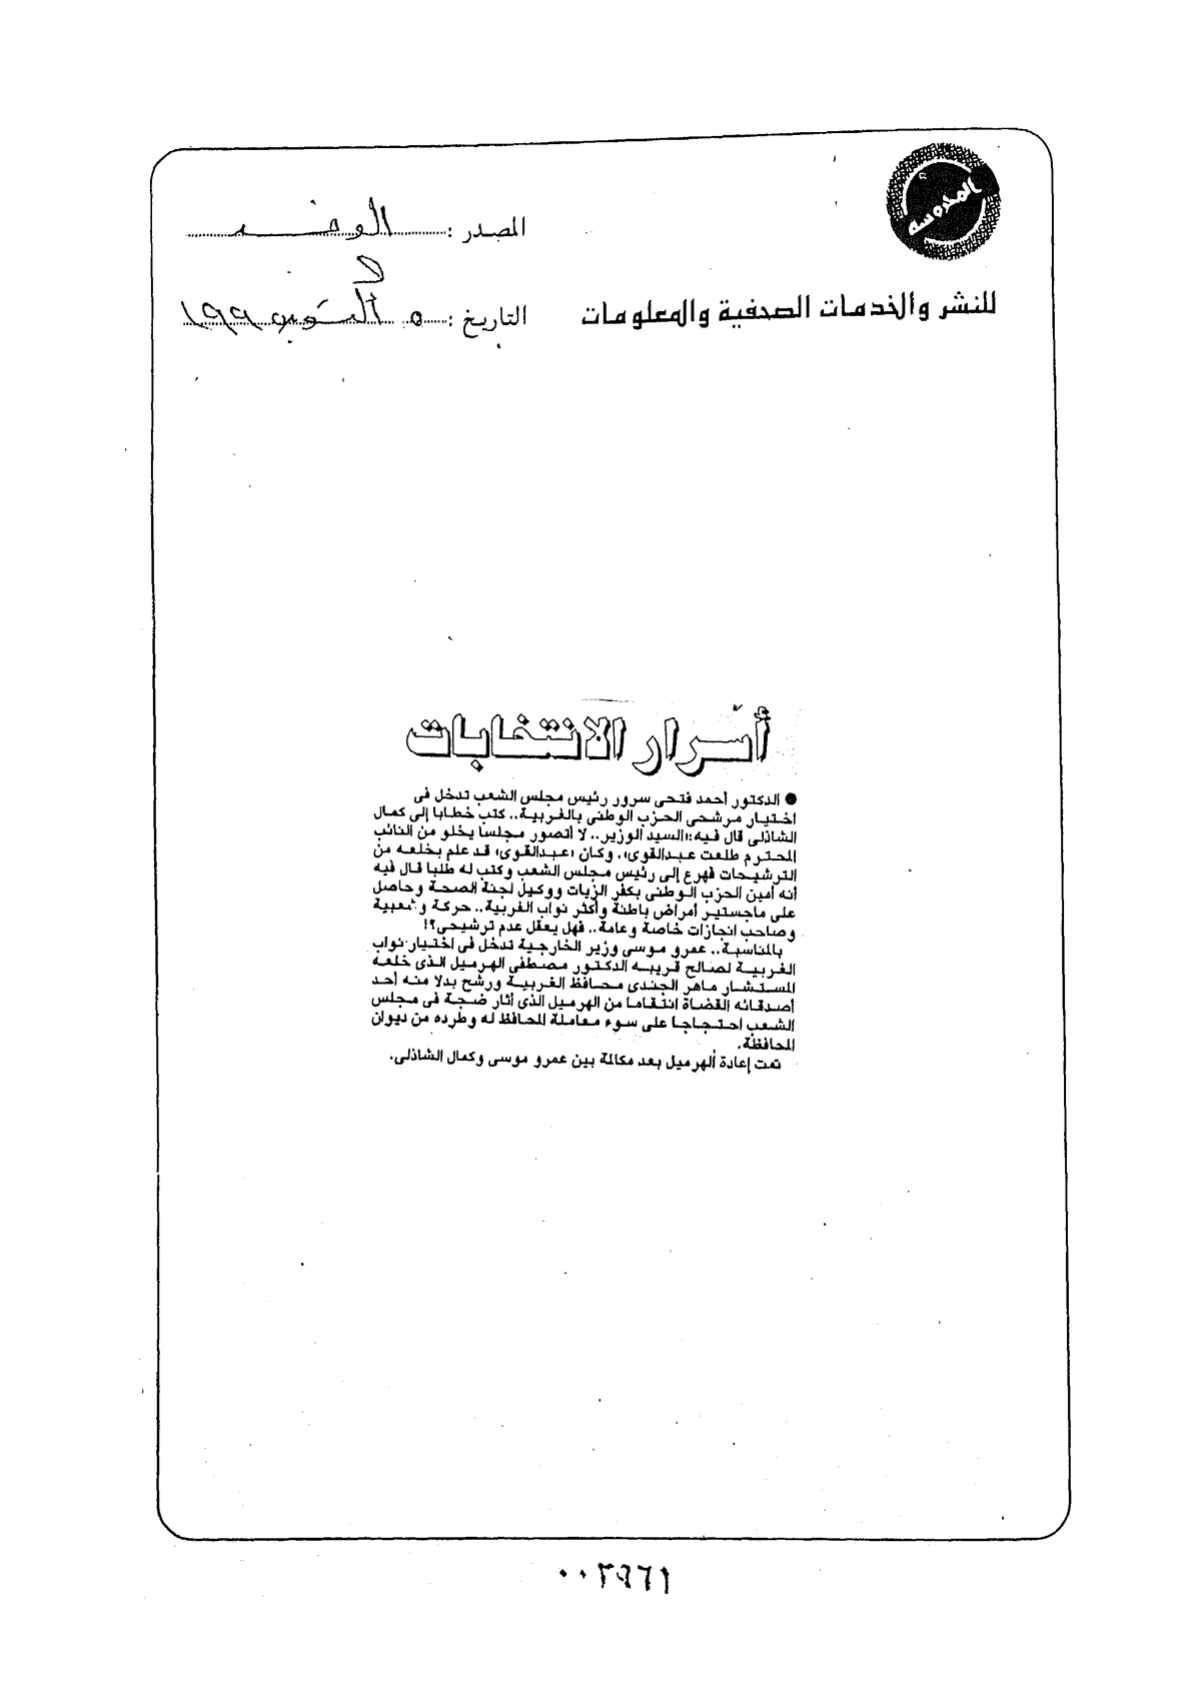 المحروسة
المصدر : الوفد
للنشر والخدمات الصحفية والمعلومات
التاريخ : ٥ أكتوبر ١٩٩
أسرار الانتخابات
● الدكتور أحمد فتحى سرور رئيس مجلس الشعب تدخل فى
اختيار مرشحى الحزب الوطنى بالغربية.. كتب خطابا إلى كمال
الشاذلى قال فيه:«السيد الوزير.. لا أتصور مجلسا يخلو من النائب
المحترم طلعت عبدالقوى». وكان «عبدالقوى» قد علم بخلعه من
الترشيحات فهرع إلى رئيس مجلس الشعب وكتب له طلبا قال فيه
أنه أمين الحزب الوطنى بكفر الزيات ووكيل لجنة الصحة وحاصل
على ماجستير أمراض باطنة وأكثر نواب الغربية.. حركة وشعبية
وصاحب انجازات خاصة وعامة.. فهل يعقل عدم ترشيحى؟!
بالمناسبة.. عمرو موسى وزير الخارجية تدخل فى اختيار نواب
الغربية لصالح قريبه الدكتور مصطفى الهرميل الذى خلعه
المستشار ماهر الجندى محافظ الغربية ورشح بدلا منه أحد
أصدقائه القضاة انتقاما من الهرميل الذى أثار ضجة فى مجلس
الشعب احتجاجا على سوء معاملة المحافظ له وطرده من ديوان
المحافظة.
تمت إعادة الهرميل بعد مكالمة بين عمرو موسى وكمال الشاذلى.
٠٠٢٩٦١